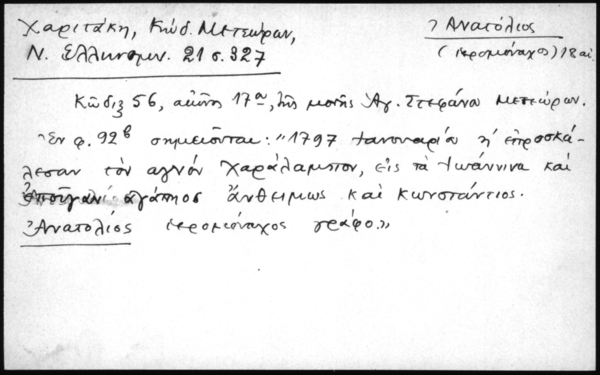 Χαριτάκη, Κώδ. Μετεώρων,
Ν. Ελληνομν. 21 σ. 327
Ἀνατόλιος
(ιερομόναχος) 18 αἰ
Κῶδιξ 56, αἰῶνος 17ου, τῆς μονῆς Ἁγ. Στεφάνου Μετεώρων.
Ἐν φ. 92β σημειοῦται: "1797 Ιανουαρίου ἐπροσκά-
λεσαν τὸν ἁγιόν Χαράλαμπον, εἰς τὰ Ἰωάννινα καὶ
ἄνθειμως καὶ κωνστάντιος.
Ἀνατολιός ιερομόναχος γράφο."